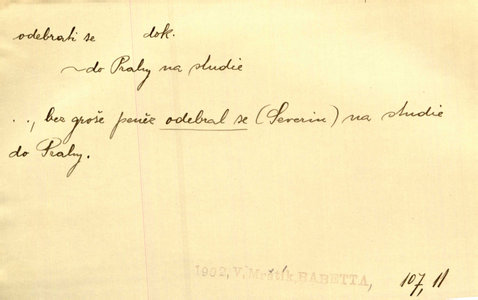 odebrati se dok.
~ do Prahy na studie
..., bez groše peněz odebral se (Severin) na studie
do Prahy.
1902, V. Mrštík, BABETTA, 107, 11